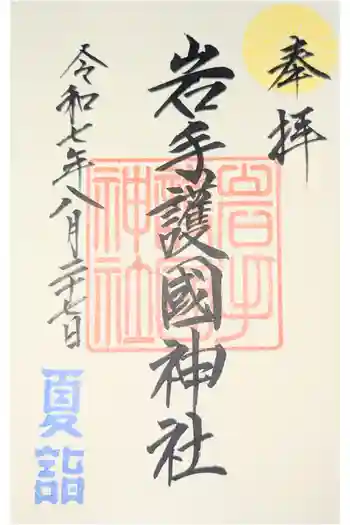 奉拝
岩手護國神社
岩手護國神社
令和七年八月二十七日
夏詣